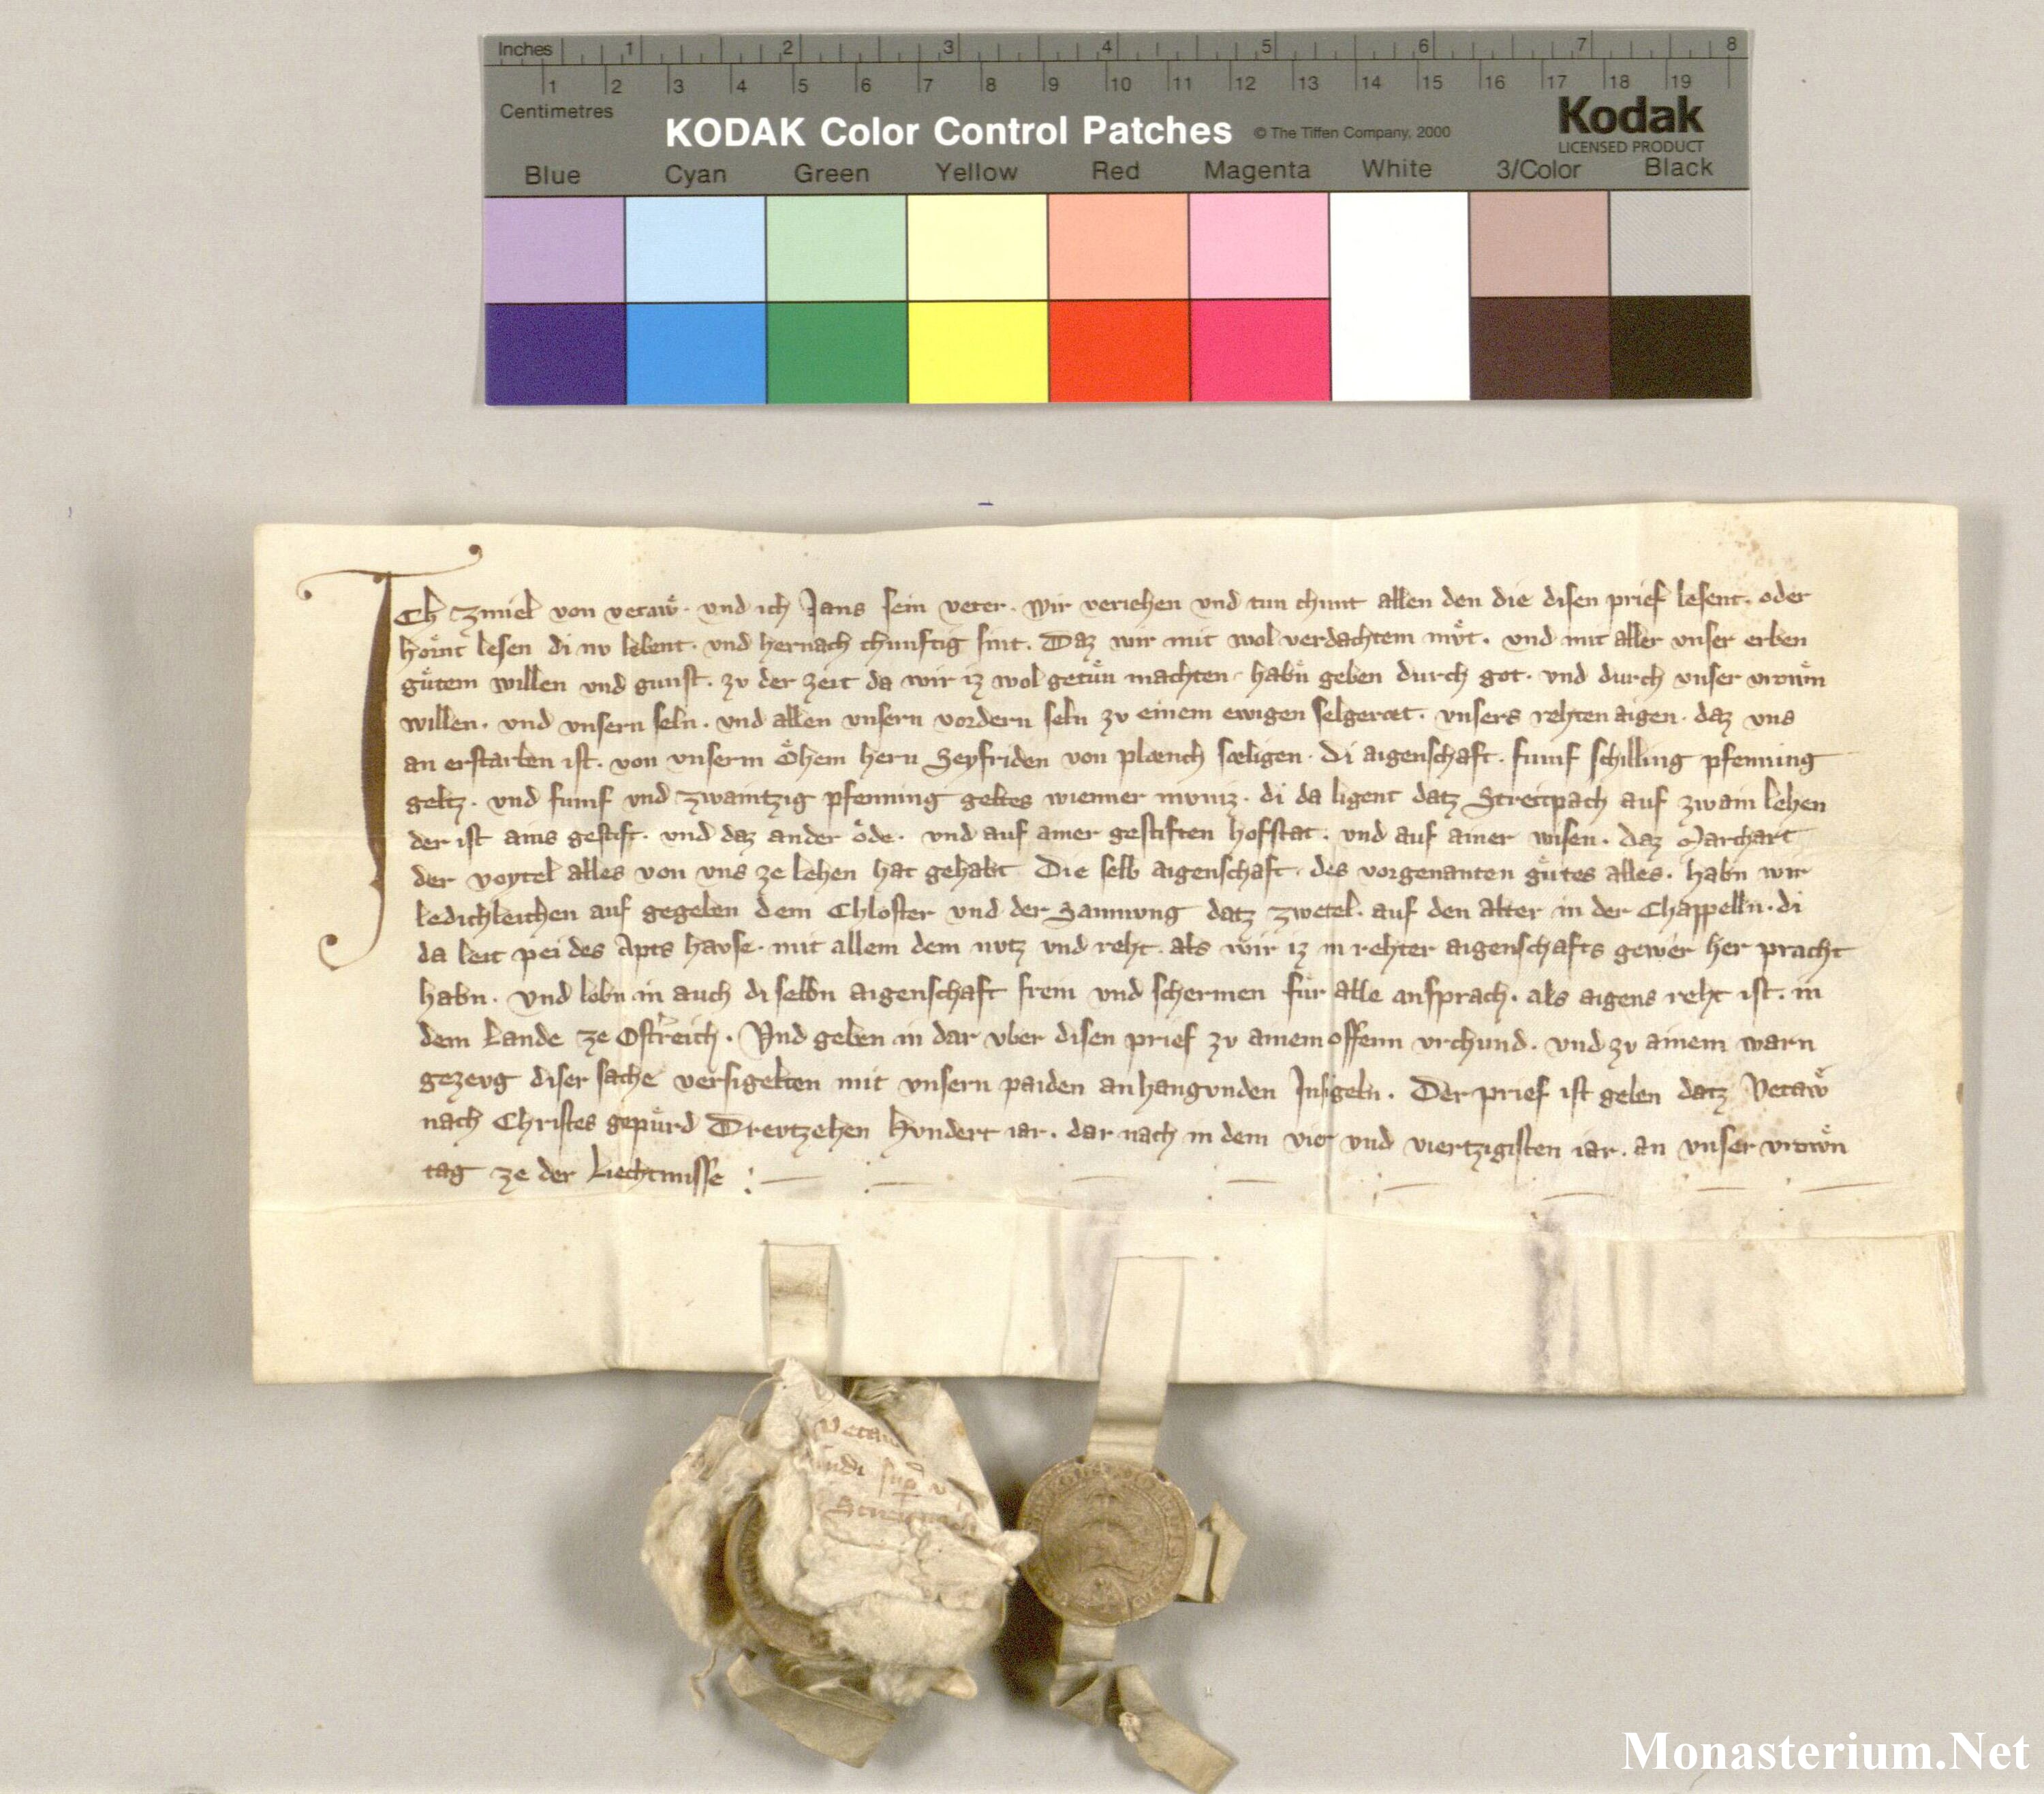 Inches 1 2 3 4 5 6 7 8
1 2 3 4 5 6 7 8 9 10 11 12 13 14 15 16 17 18 19
Centimetres
KODAK Color Control Patches © The Tiffen Company, 2000 Kodak
LICENSED PRODUCT
Blue Cyan Green Yellow Red Magenta White 3/Color Black
Ich Zmiel von vetaẘ. und ich Jans sein veter. wir veriehen und tun chunt allen den die disen prief lesent. oder
hoͤrnt lesen di nv lebent. und hernach chunftig sint. Daz wir mit wol verdachtem mvͦt. und mit aller unser erben
guͤtem willen und gunst. zv der zeit da wir iz wol getuͤn machten. habn geben durch got. und durch unser vrowͤn
willen. und unsern seln. und allen unsern vordern seln zv einem ewigen selgeræt. unsers rehten aigen. daz uns
an erstarben ist. von unserm Oͤhem hern Seyfriden von plænch sæligen. di aigenschaft. fumf schilling pfenning
geltz. und fumf und zwaintzig pfenning geltes wienner mvniz. di da ligent datz Streitpach auf zwain lehen
der ist ains gestift. und daz ander oͤde. und auf ainer gestiften hofstat. und auf ainer wisen. daz Marchart
der voytel alles von uns ze lehen hat gehabt Die selb aigenschaft. des vorgenanten guͤtes alles. habn wir
ledichleichen auf gegeben dem Chloster und der Samnvng datz zwetel. auf den alter in der Chappelln. di
da leit pei des Apts havse. mit allem dem nvtz und reht. als wir iz in rehter aigenschafts gewer her pracht
habn. und lobn in auch di selbn aigenschaft frein und schermen fuͤr alle ansprach. als aigens reht ist. in
dem Lande ze Osterreich. Vnd geben in dar vber disen prief zv ainem offenn vrchund. und zv ainem warn
gezevg diser sache versigelten mit unsern paiden anhangvnden Insigeln. Der prief ist geben datz Vetaẘ
nach Christes gepuͤrd Drevtzehen Hvndert iar. dar nach in dem vier und viertzigisten iar. an unser vrowͤn
tag ze der Liechtmisse
Monasterium.Net